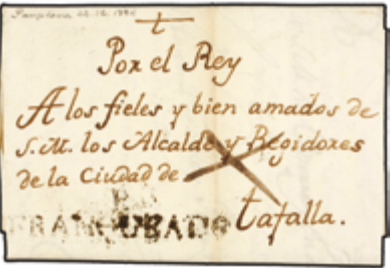 Pamplona
Por el Rey
A los fieles y bien amados de
S. M. los Alcalde y Regidores
de la Ciudad de
Tafalla.
FRANQUEADO